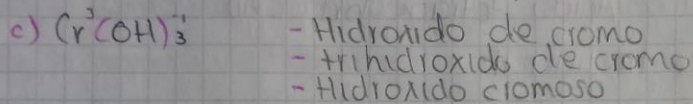 c) Cr³(OH)₃⁻¹ - Hidroxido de cromo
- trihidroxido de cromo
- Hidroxido cromoso